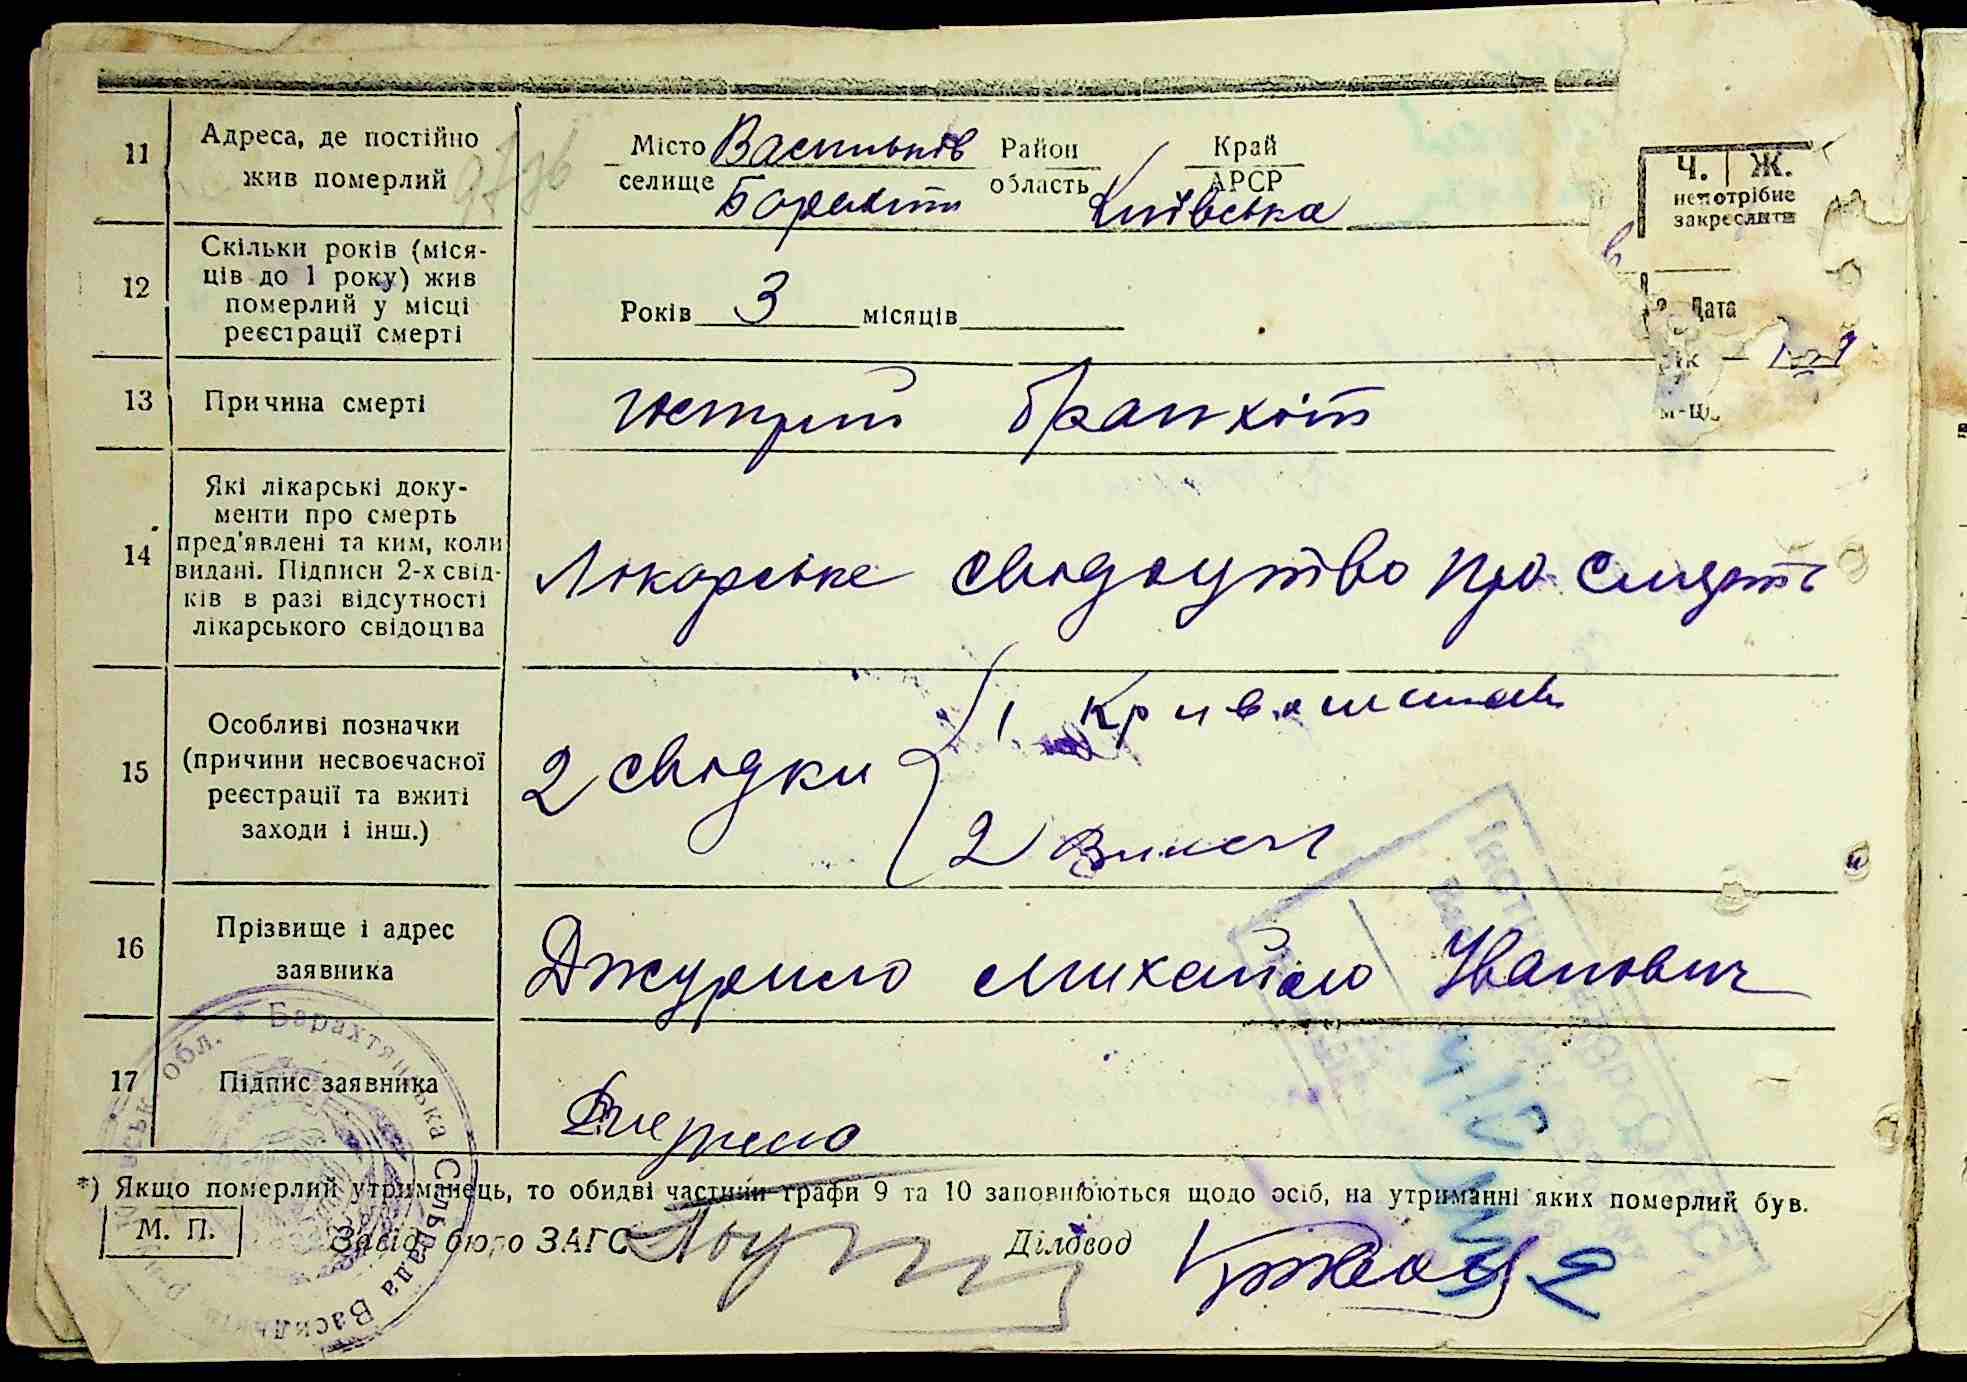 11
Адреса, де постійно
жив померлий
Місто Васильків Район Край
селище Барахти область Київська АРСР
12
Скільки років (міся-
ців до 1 року) жив
померлий у місці
реєстрації смерті
Років 3 місяців
13
Причина смерті
гострий бранхіт
14
Які лікарські доку-
менти про смерть
пред'явлені та ким, коли
видані. Підписи 2-х свід-
ків в разі відсутності
лікарського свідоцтва
Лікарське свідоцтво про смерть
15
Особливі позначки
(причини несвоєчасної
реєстрації та вжиті
заходи і інш.)
2 свідки
1
2
16
Прізвище і адрес
заявника
Джурило Михайло Іванович
17
Підпис заявника
*) Якщо померлий утриманець, то обидві частини графи 9 та 10 заповнюються щодо осіб, на утриманні яких померлий був.
М. П.
бюро ЗАГС
Діловод
Ч. Ж.
непотрібне
закреслити
Дата
обл. * Барахтянська Сільрада Васильк